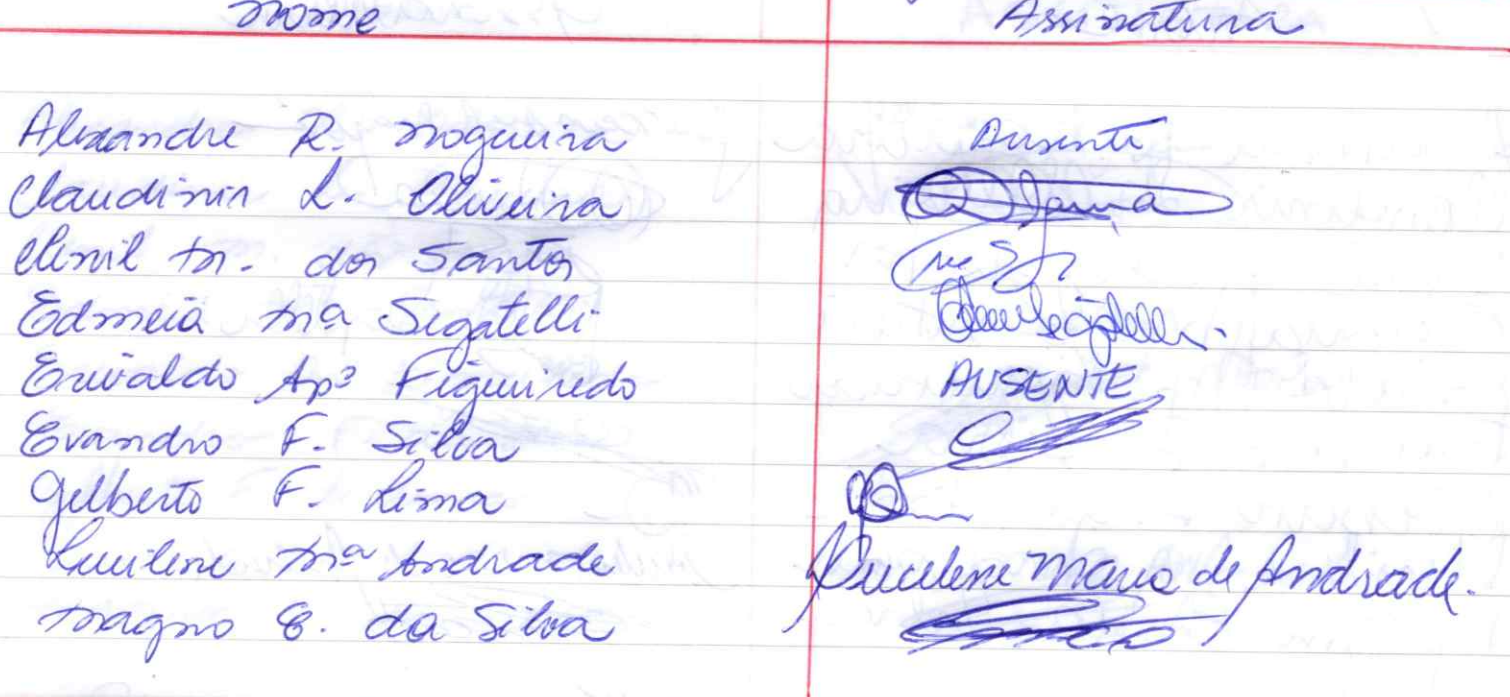 Nome Assinatura
Alexandre R. Nogueira Ausente
Claudinin L. Oliveira
Clenil M. dos Santos
Edmeia Mª Segatelli
Erivaldo Apº Figueiredo AUSENTE
Evandro F. Silva
Gilberto F. Lima
Lucilene Mª Andrade Lucilene Maria de Andrade.
Magno E. da Silva